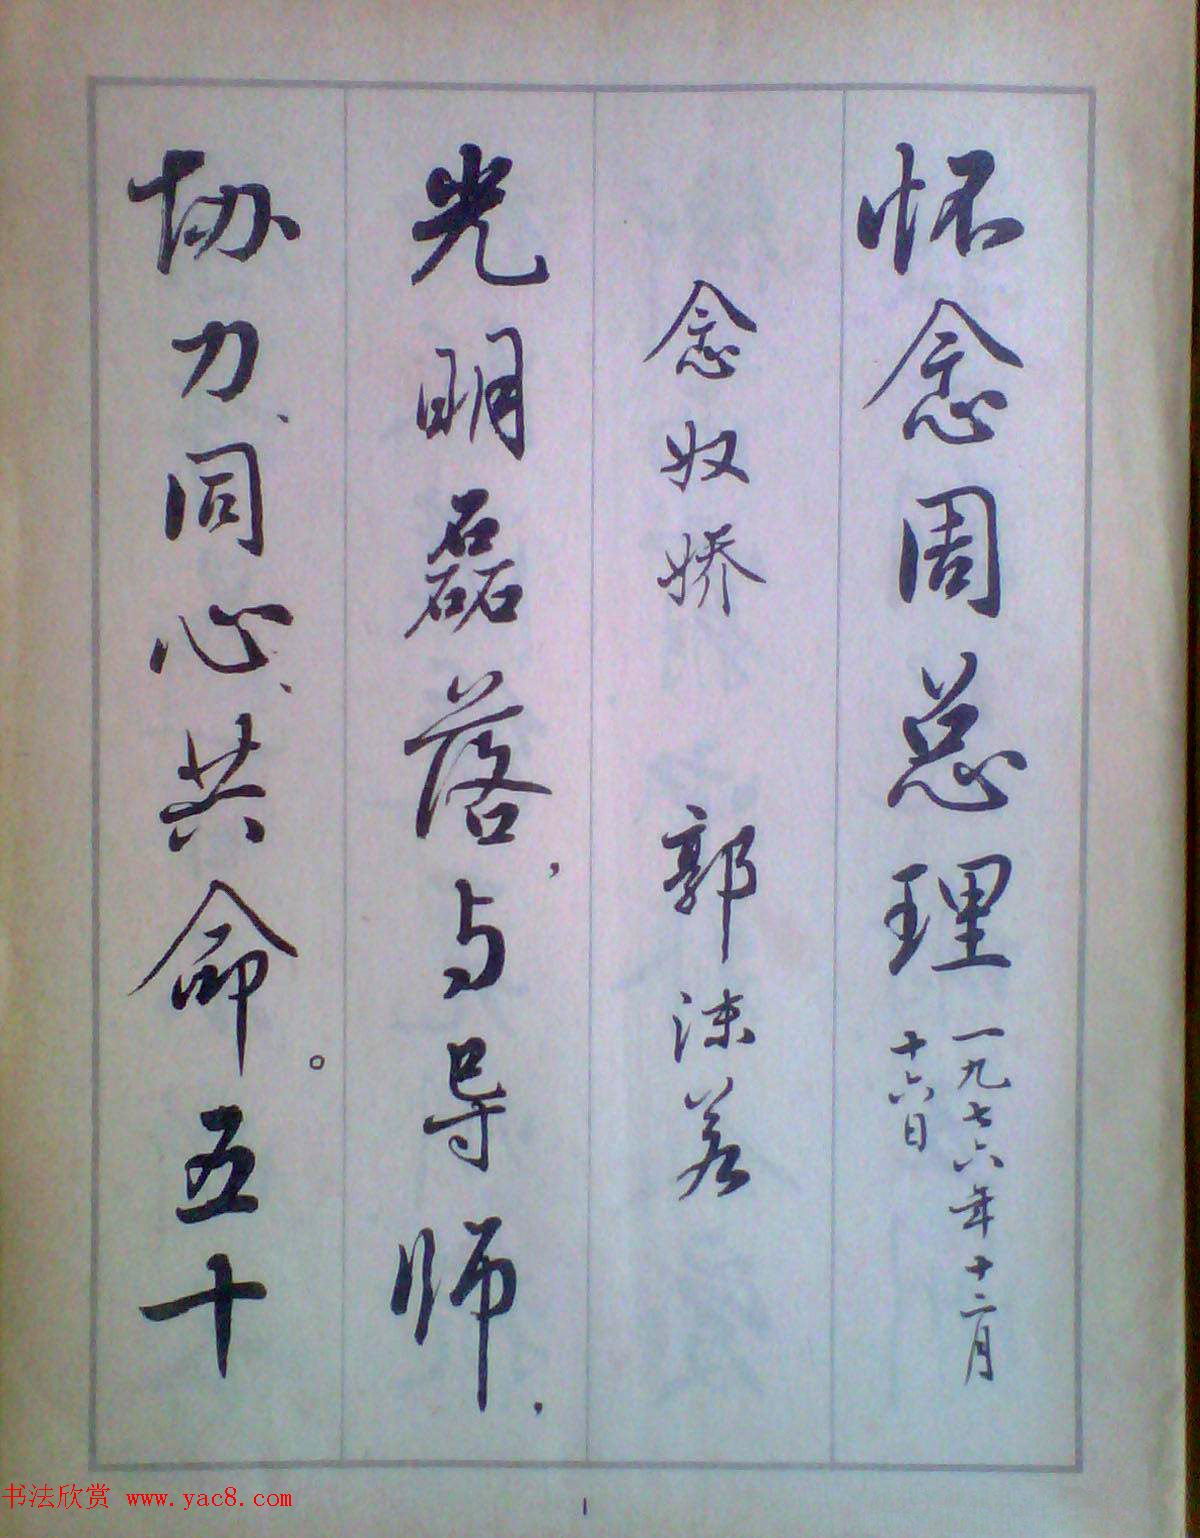 怀念周总理
一九七六年十二月
十六日
念奴娇 郭沫若
光明磊落，与导师，
协力、同心、共命。五十
1
书法欣赏 www.yac8.com